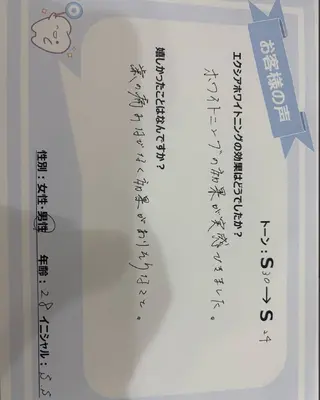 お客様の声
トーン：S30→S24
エクシアホワイトニングの効果はどうでしたか？
ホワイトニングの効果が実感できました。
嬉しかったことはなんですか？
歯の痛みはなく効果がありそうなこと。
性別：女性・男性　年齢：28　イニシャル：S.S